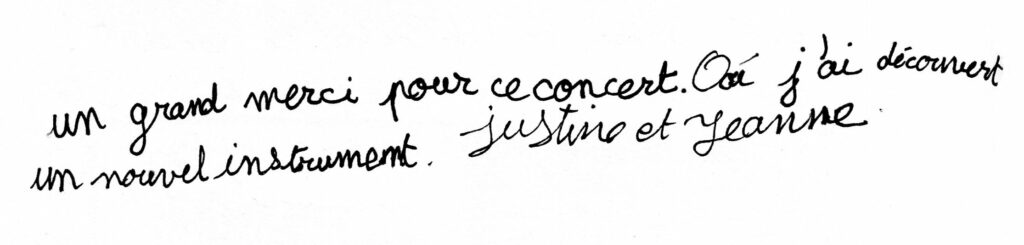 un grand merci pour ce concert. Où j'ai découvert
un nouvel instrument. Justine et Jeanne.